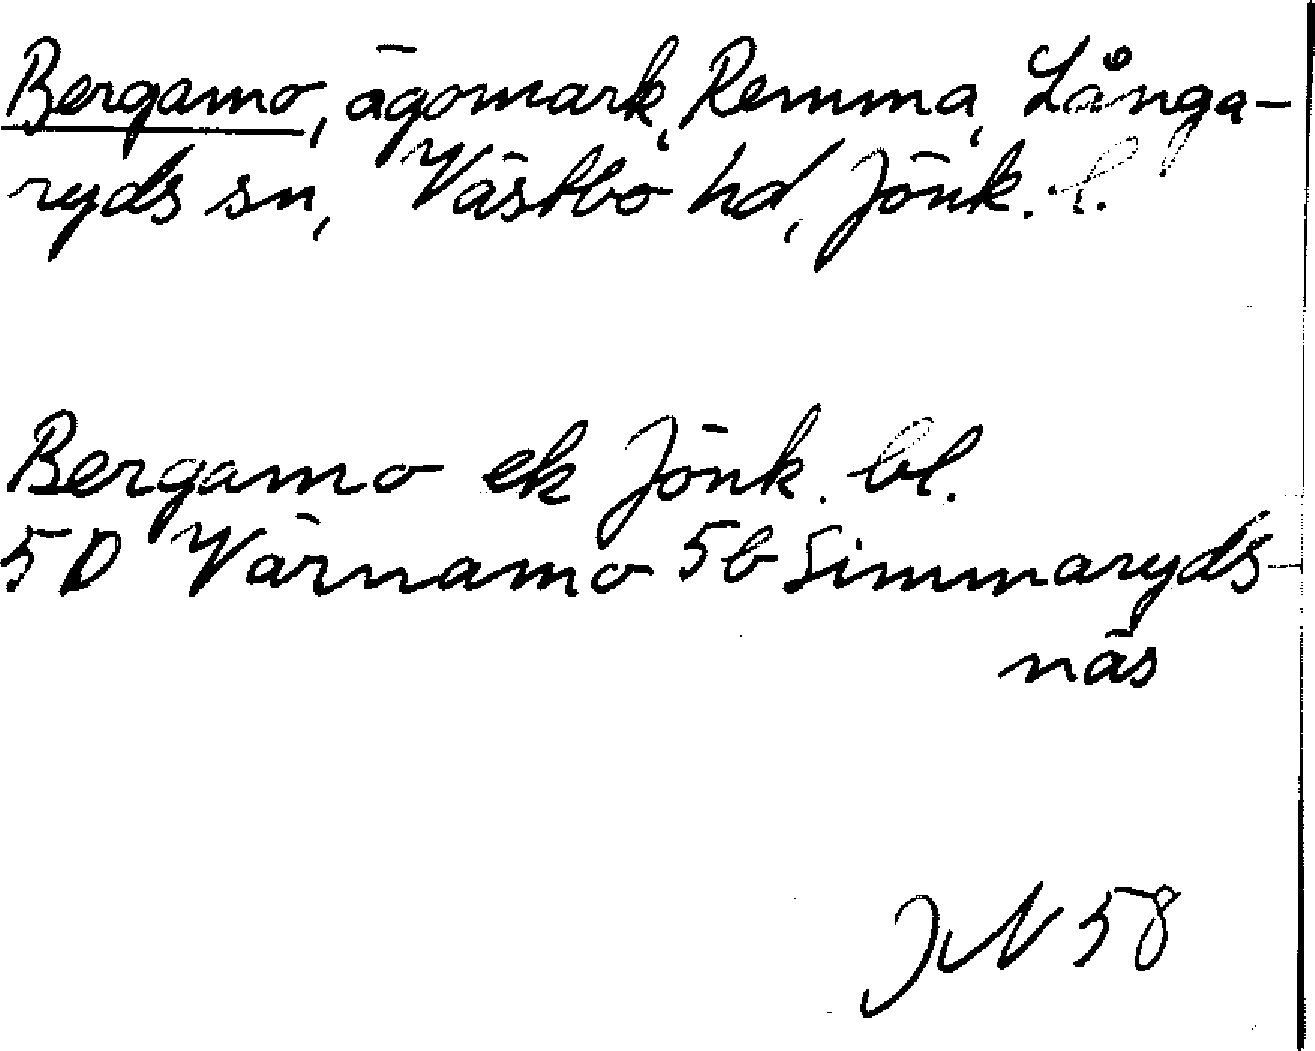 Bergamo, ägomark, Remma, Långa-
ryds sn, Västbo hd, Jönk. l.
Bergamo ek Jönk. bl.
5D Värnamo 5b Simmaryds-
näs
58